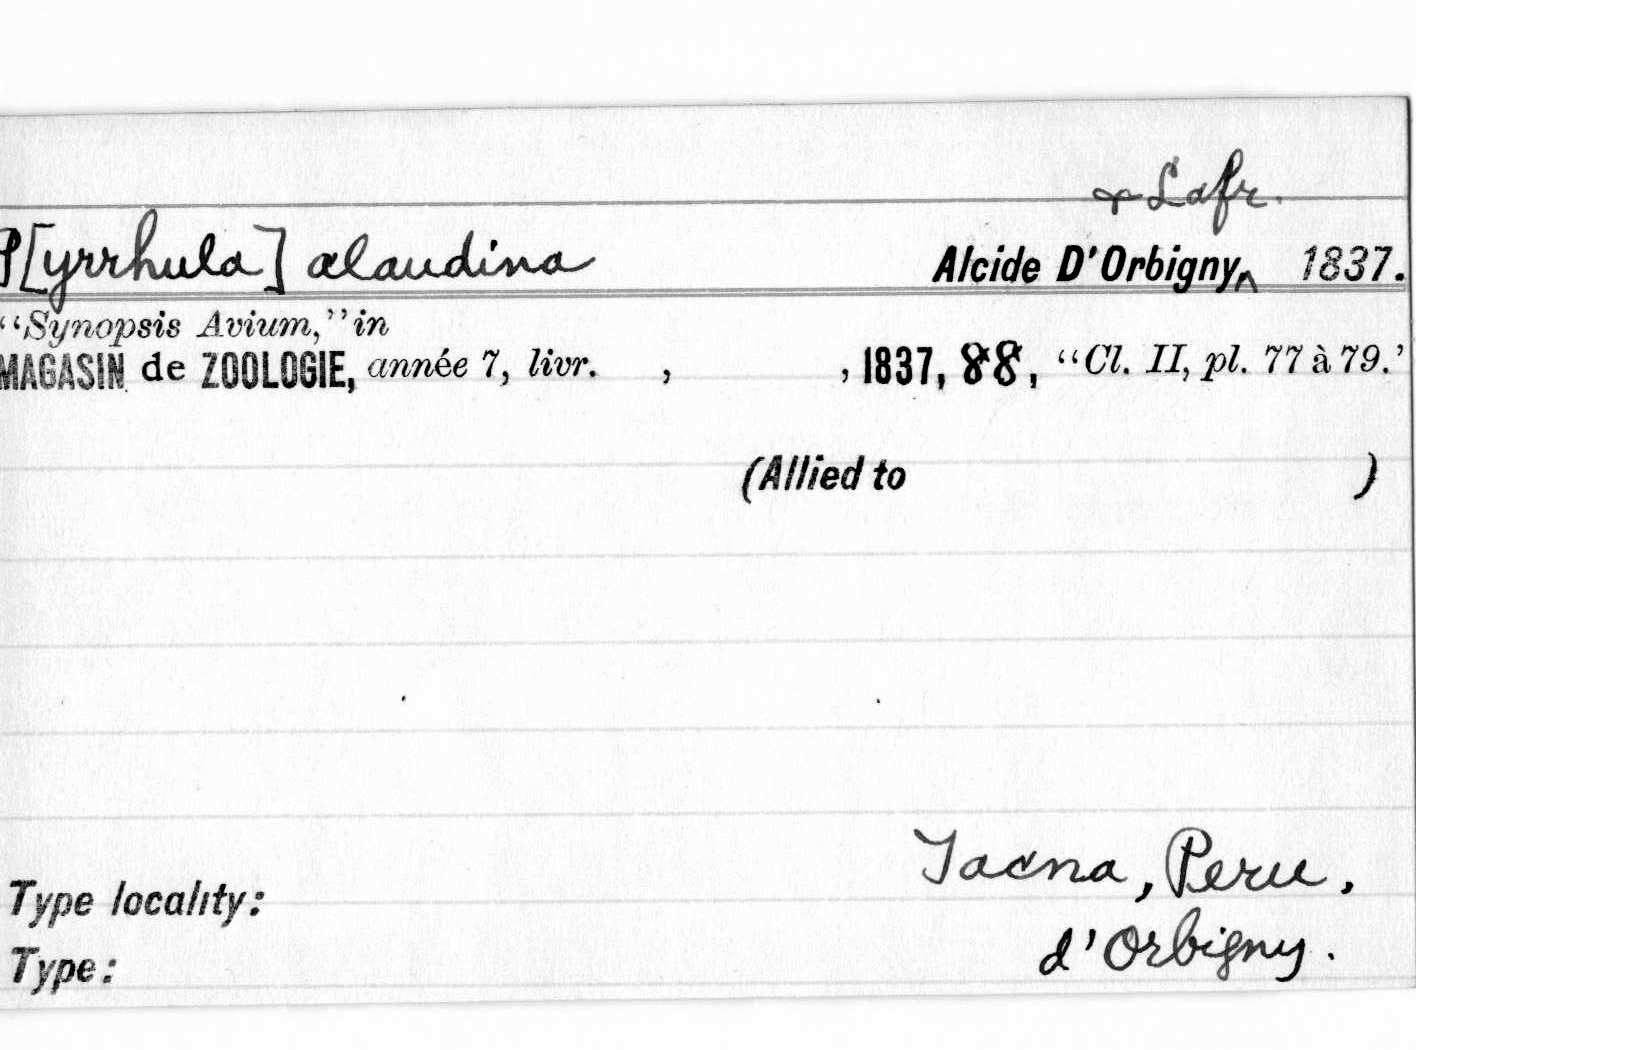 & Lafr.
P[yrrhula] alaudina Alcide D'Orbigny^ 1837.
"Synopsis Avium," in
MAGASIN de ZOOLOGIE, année 7, livr. , , 1837, 88, "Cl. II, pl. 77 à 79.'
(Allied to )
Type locality: Tacna, Peru,
Type: d'Orbigny.